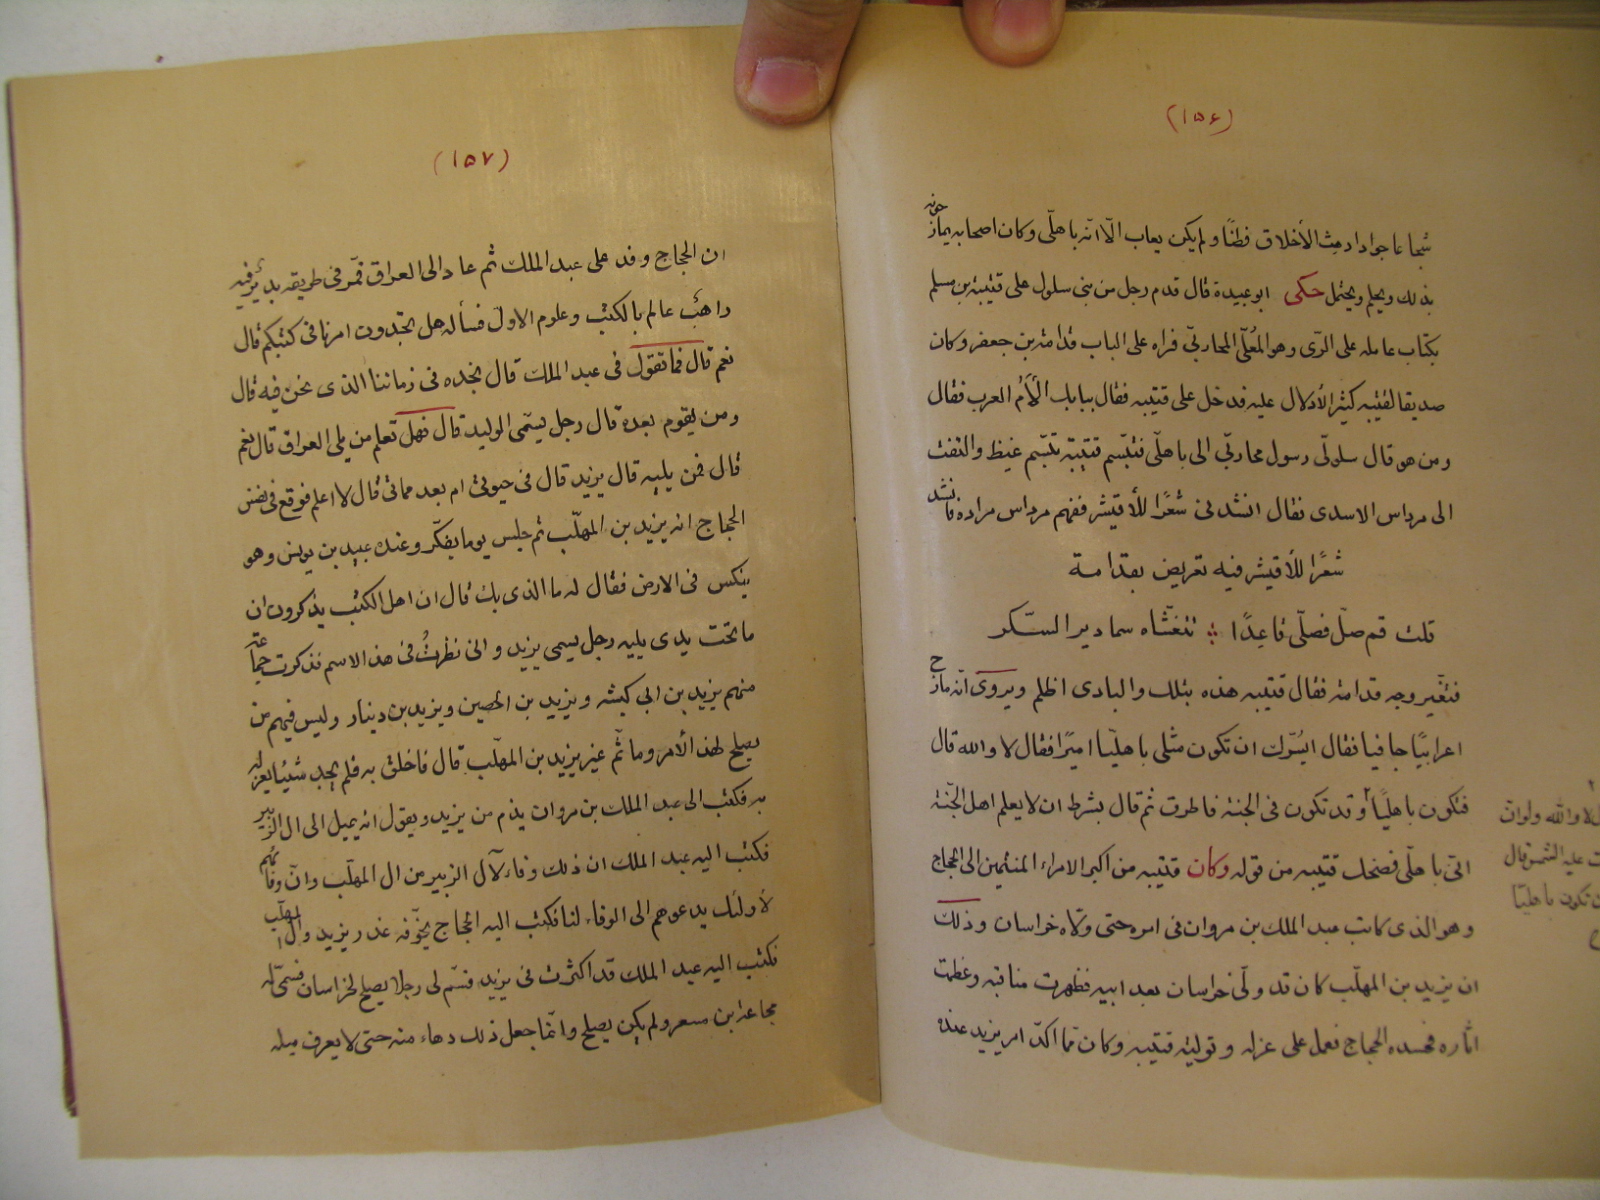 (١٥٦)
شجاعا جوادا دمث الأخلاق فطنًا ولم يكن يعاب الّا انّه باهلّى وكان اصحابه يمازحونه
بذلك ويحلم ويحتمل حكى ابو عبيدة قال قدم رجل من بنى سلول على قتيبة بن مسلم
بكتاب عامله على الرّى وهو المُعلّى المحاربّى فراه على الباب قدامة بن جعفر وكان
صديقا لقتيبه كثير الأدلال عليه فدخل على قتيبه فقال ببابك ألأم العرب فقال
ومن هو قال سلولّى رسول محاربّى الى باهلّى فتبّسم قتيبّة تبسّم غيظ والتفت
الى مرداس الاسدى فقال انشدنى شعرًا للأقيشر ففهم مرداس مراده فانشد
شعرًا للأقيشر فيه تعريض بقدامة
قلت قم صلّ فصلّى قاعدًا ؞ تتغشّاه سمادير السّكر
فتغّير وجه قدامة فقال قتيبه هذه بتلك والبادى اظلم ويروى انّه مازح
اعرابيّا جافيا فقال ايسّرك ان تكون مثلى باهليّا اميرًا فقال لا والله قال
فتكون باهليّا وقد تكون فى الجنة فاطرق ثم قال بشرط ان لا يعلم اهل الجنّة
انّى باهلّى فضحك قتيبه من قوله وكان قتيبه من اكبر الامراء المنتمين الى الحجاج
وهو الذى كاتب عبد الملك بن مروان فى امره حتى ولّاه خراسان وذلك
ان يزيد بن المهلّب كان قد ولّى خراسان بعد ابيه فظهرت مناقبه وعظمت
اثاره فحسده الحجاج فعمل على عزله وتوليّة قتيبه وكان ممّا اكدّ امر يزيد عنده
لا والله ولوانّ
عليه الشمس قال
تكون باهليّا
(١٥٧)
ان الحجاج وفد على عبد الملك ثم عاد الى العراق فمّر فى طريقه بدير فيه
راهب عالم بالكتب وعلوم الاول فسأله هل تجدون امرنا فى كتبكم قال
نعم قال فما تقول فى عبد الملك قال نجده فى زماننا الذى نحن فيه قال
ومن يقوم بعده قال رجل يسمّى الوليد قال فهل تعلم من يلى العراق قال نعم
قال فمن يليه قال يزيد قال فى حيوتى ام بعد مماتى قال لا اعلم فوقع فى نفس
الحجاج انه يزيد بن المهلّب ثم جلس يوما يفكّر وعنده عبيد بن يونس وهو
ينكس فى الارض فقال له ما الذى بك قال ان اهل الكتب يذكرون ان
ما تحت يدى يليه رجل يسمى يزيد وانى نظرتُ فى هذا الاسم فذكرت جماعة
منهم يزيد بن ابى كبشه ويزيد بن الحصين ويزيد بن دينار وليس فيهم من
يصلح لهذا الأمر وما ثّم غير يزيد بن المهلّب قال فاخلق به فلم يجد شيئا يعزله
به فكتب الى عبد الملك بن مروان يذم من يزيد ويقول انه يميل الى ال الزبير
فكتب اليه عبد الملك ان ذلك وفاء لآل الزبير من ال المهلّب وانّ وفائهم
لأولئك يدعوهم الى الوفاء لنا فكتب اليه الحجاج يخّوفه غدر يزيد وال المهلّب
فكتب اليه عبد الملك قد اكثرت فى يزيد فسّم لى رجلا يصلح لخراسان فسمّى له
مجاعة ابن مسعر ولم يكن يصلح وانّما جعل ذلك دهاء منه حتى لا يعرف ميله